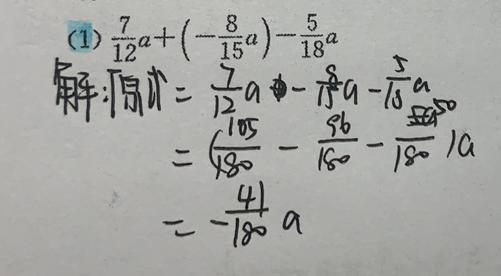 (1) 7/12 a + (-8/15 a) - 5/18 a
解:原式 = 7/12 a - 8/15 a - 5/18 a
= (105/180 - 96/180 - 50/180)a
= -41/180 a